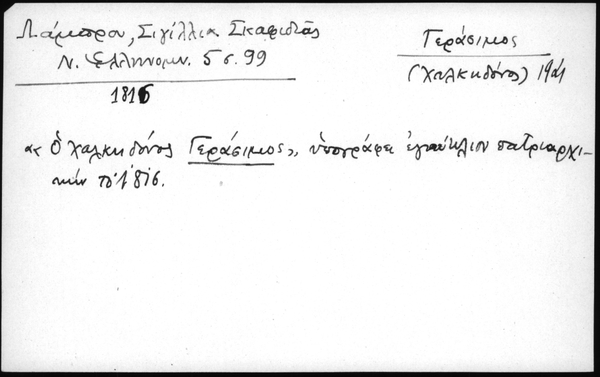 Λάμπρου, Σιγίλλια Σκαφιδιᾶς
Ν. Ἑλληνομν. 5 σ. 99
1816
Γεράσιμος
(Χαλκηδόνος)
«Ὁ Χαλκηδόνος Γεράσιμος», ὑπογράφει ἐγκύκλιον πατριαρχι-
κήν τό 1816.